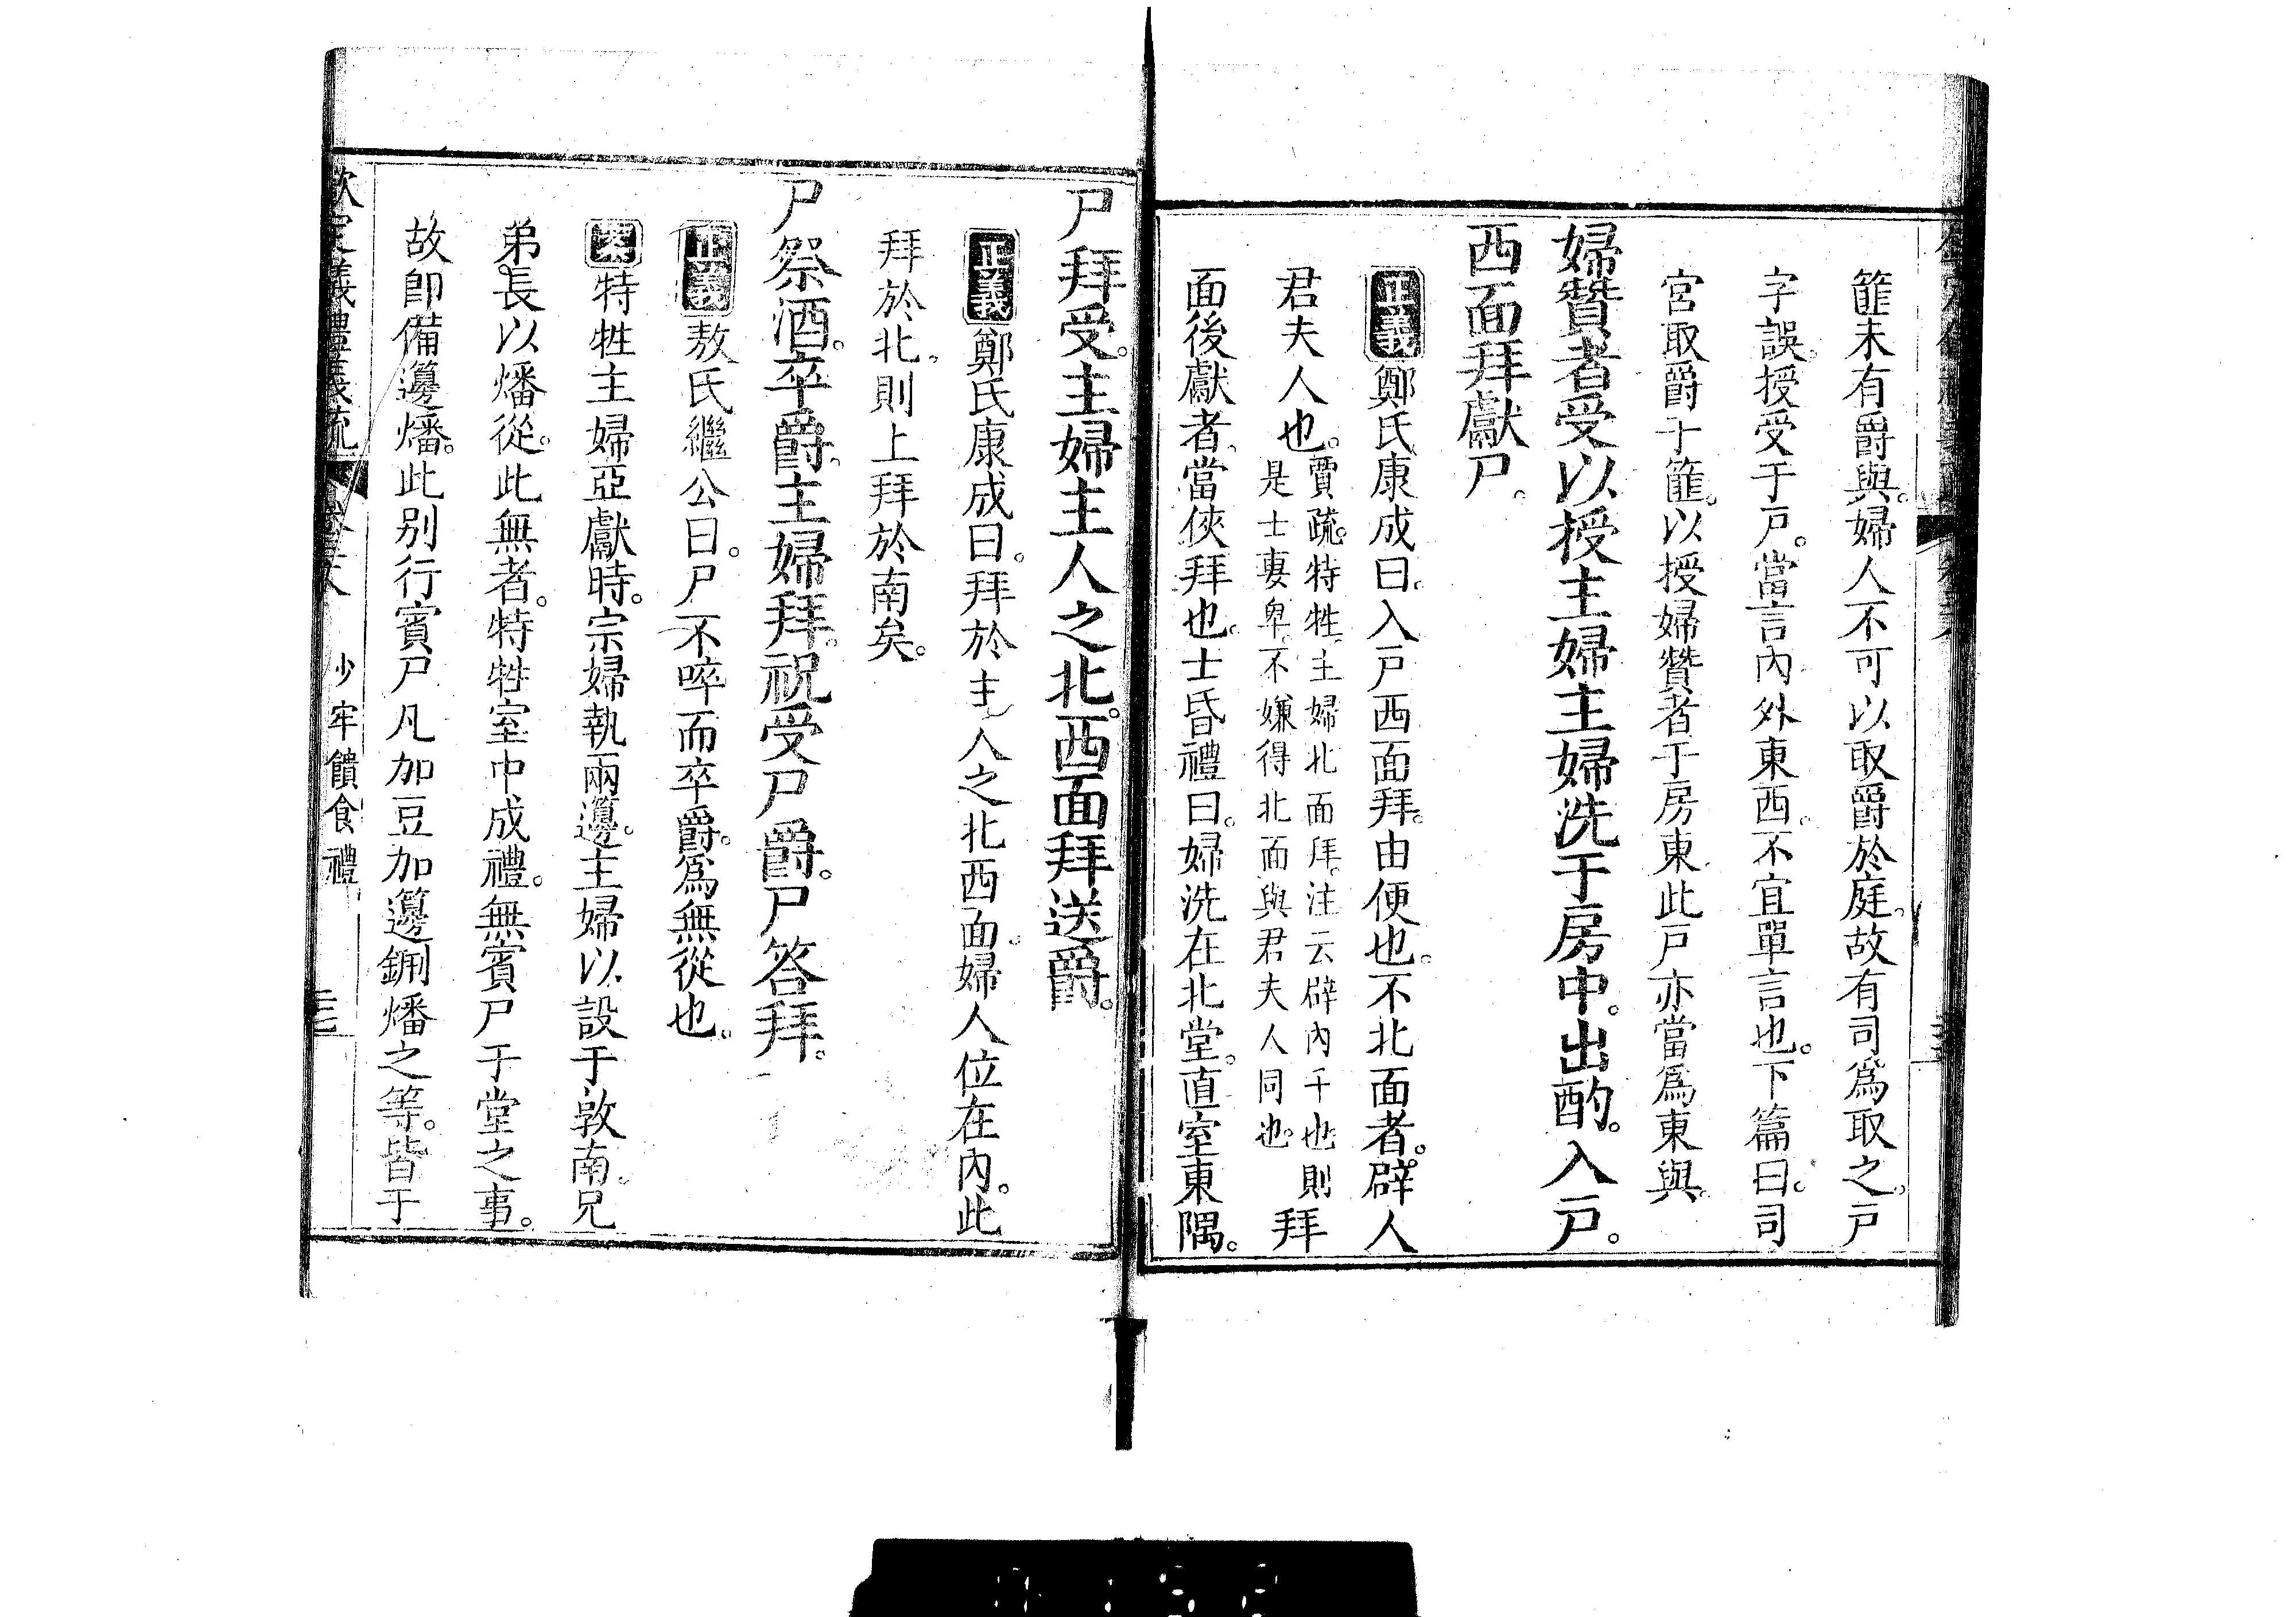 篚未有爵與。婦人不可以取爵於庭。故有司爲取之。戸
字誤。授受于戸。當言内外東西。不宜單言也。下篇曰。司
宫取爵于篚。以授婦贊者于房東。此戸亦當爲東與。
婦贊者受。以授主婦。主婦洗于房中。出酌。入戸。
西面拜。獻尸。
正義鄭氏康成曰。入戸西面拜。由便也。不北面者。辟人
君夫人也。賈疏。特牲。主婦北面拜。注云辟內子也。則
是士妻卑。不嫌得北面與君夫人同也。拜
面後獻者。當俠拜也。士昏禮曰。婦洗在北堂。直室東隅。
尸拜受。主婦主人之北。西面拜送爵。
正義鄭氏康成曰。拜於主人之北西面。婦人位在内。此
拜於北。則上拜於南矣。
尸祭酒。卒爵。主婦拜。祝受尸爵。尸答拜。
正義敖氏繼公曰。尸不啐而卒爵。爲無從也。
案特牲主婦亞獻時。宗婦執兩籩。主婦以設于敦南。兄
弟長以燔從。此無者。特牲室中成禮。無賓尸于堂之事。
故即備籩燔。此别行賓尸凡加豆加籩鉶燔之等。皆于
欽定儀禮義疏 少牢饋食禮